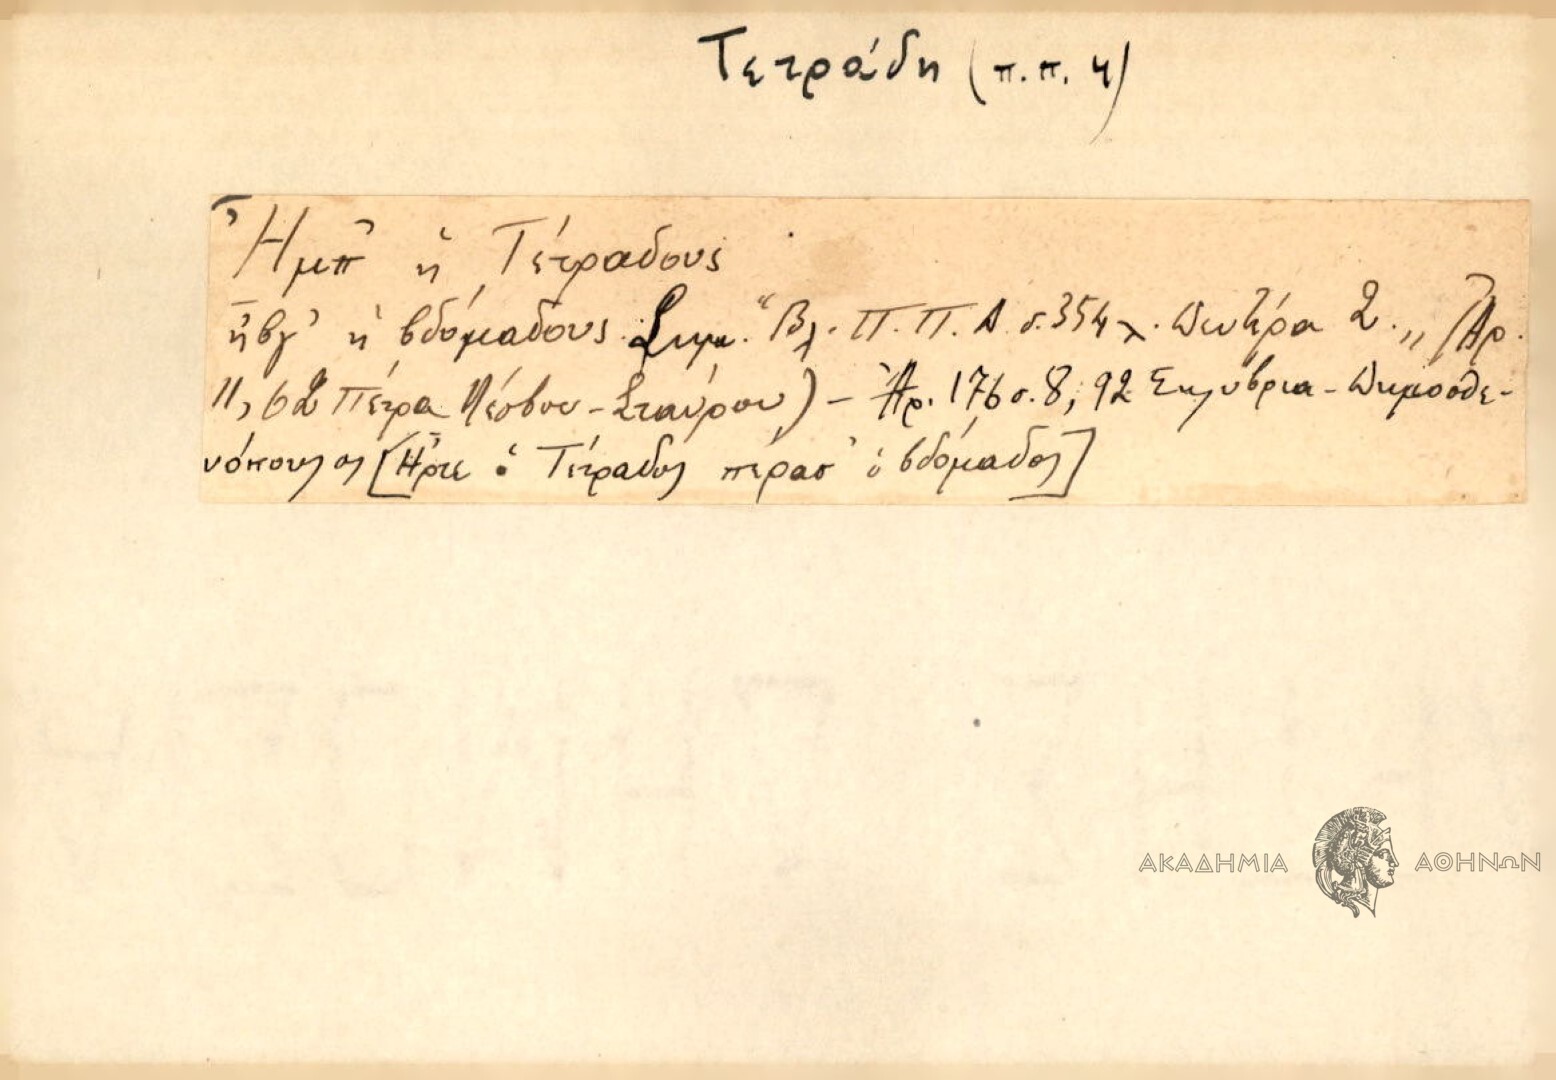 Τετράδη (π.π. 4)
Ἤμπ' ἡ Τέτραδους
ἤβγ' ἡ βδόμαδους. Σημ. "Βλ. Π.Π. Α σ. 354 λ. Δευτέρα 2." (Ἀρ.
11, 62 Πέτρα Λέσβου - Σταύρου) - Ἀρ. 176 σ. 8, 92 Σηλύβρια - Δημοσθε-
νόπουλος [Ἦρτε ὁ Τέτραδος πέρασ' ὁ βδόμαδος]
ΑΚΑΔΗΜΙΑ ΑΘΗΝΩΝ